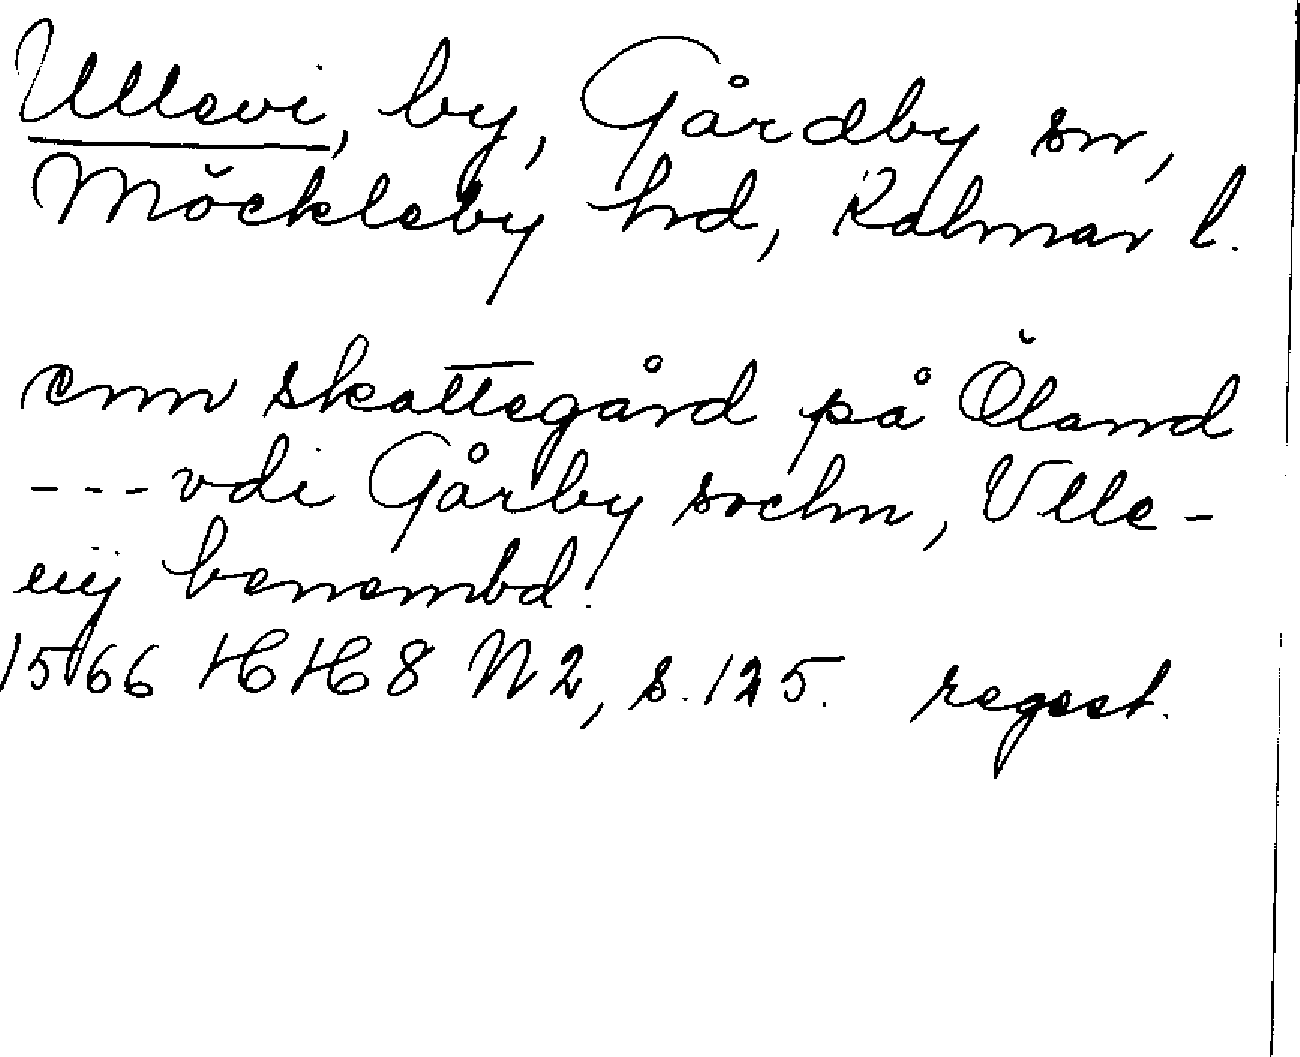 Ullevi, by, Gårdby sn,
Möckleby hd, Kalmar l.
enn skattegård på Öland
--- vdi Gårby sochn, Vlle-
uij benembd.
1566 HH 8 N 2, s. 125. regest.